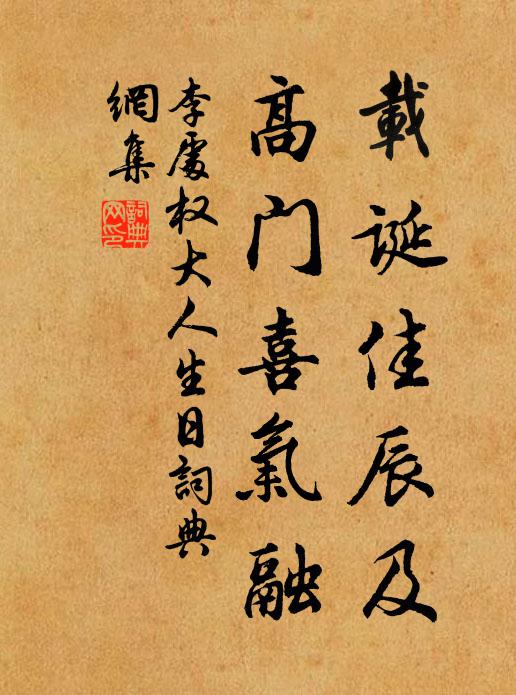 載誕佳辰及
高門喜氣融
李處权大人生日詞典
網集
詞典
网印